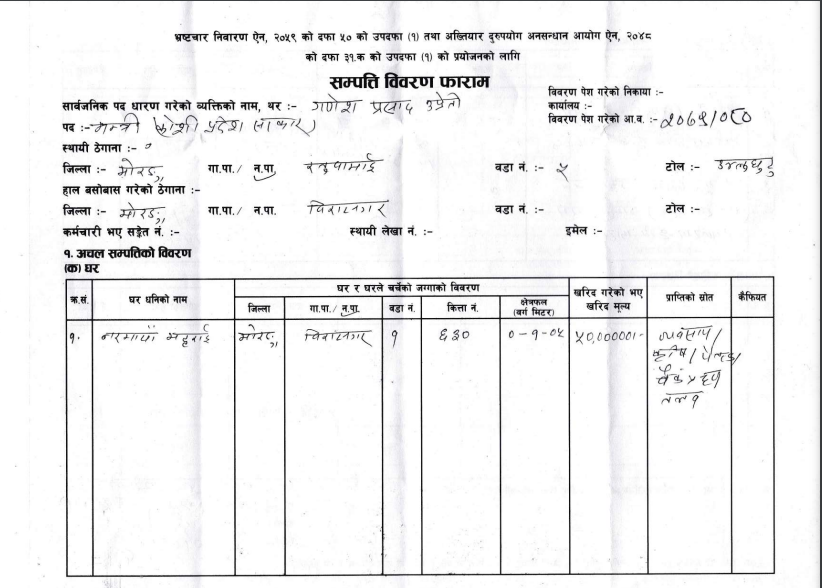 भ्रष्टचार निवारण ऐन, २०५९ को दफा ५० को उपदफा (१) तथा अख्तियार दुरुपयोग अनसन्धान आयोग ऐन, २०४८
को दफा ३१.क को उपदफा (१) को प्रयोजनको लागि
सम्पत्ति विवरण फाराम
विवरण पेश गरेको निकाया :-
सार्वजनिक पद धारण गरेको व्यक्तिको नाम, थर :- गणेश प्रसाद उप्रेती
कार्यालय :-
पद :- मन्त्री (कोशी प्रदेश सरकार)
विवरण पेश गरेको आ.व. :- २०७९/०८०
स्थायी ठेगाना :-
जिल्ला :- मोरङ्ग गा.पा./ न.पा. रतुवामाई वडा नं. :- ५ टोल :-
हाल बसोबास गरेको ठेगाना :-
जिल्ला :- मोरङ्ग गा.पा./ न.पा. विराटनगर वडा नं. :- टोल :-
कर्मचारी भए सङ्केत नं. :- स्थायी लेखा नं. :- इमेल :-
१. अचल सम्पतिको विवरण
(क) घर
क्र.सं. घर धनिको नाम घर र घरले चर्चेको जग्गाको विवरण खरिद गरेको भए खरिद मूल्य प्राप्तिको स्रोत कैफियत
जिल्ला गा.पा./ न.पा. वडा नं. कित्ता नं. क्षेत्रफल (वर्ग मिटर)
१. मोरङ्ग विराटनगर १ ६३० ०-१-०५ ५०,००००० ।- व्यवसाय/
कृषि/